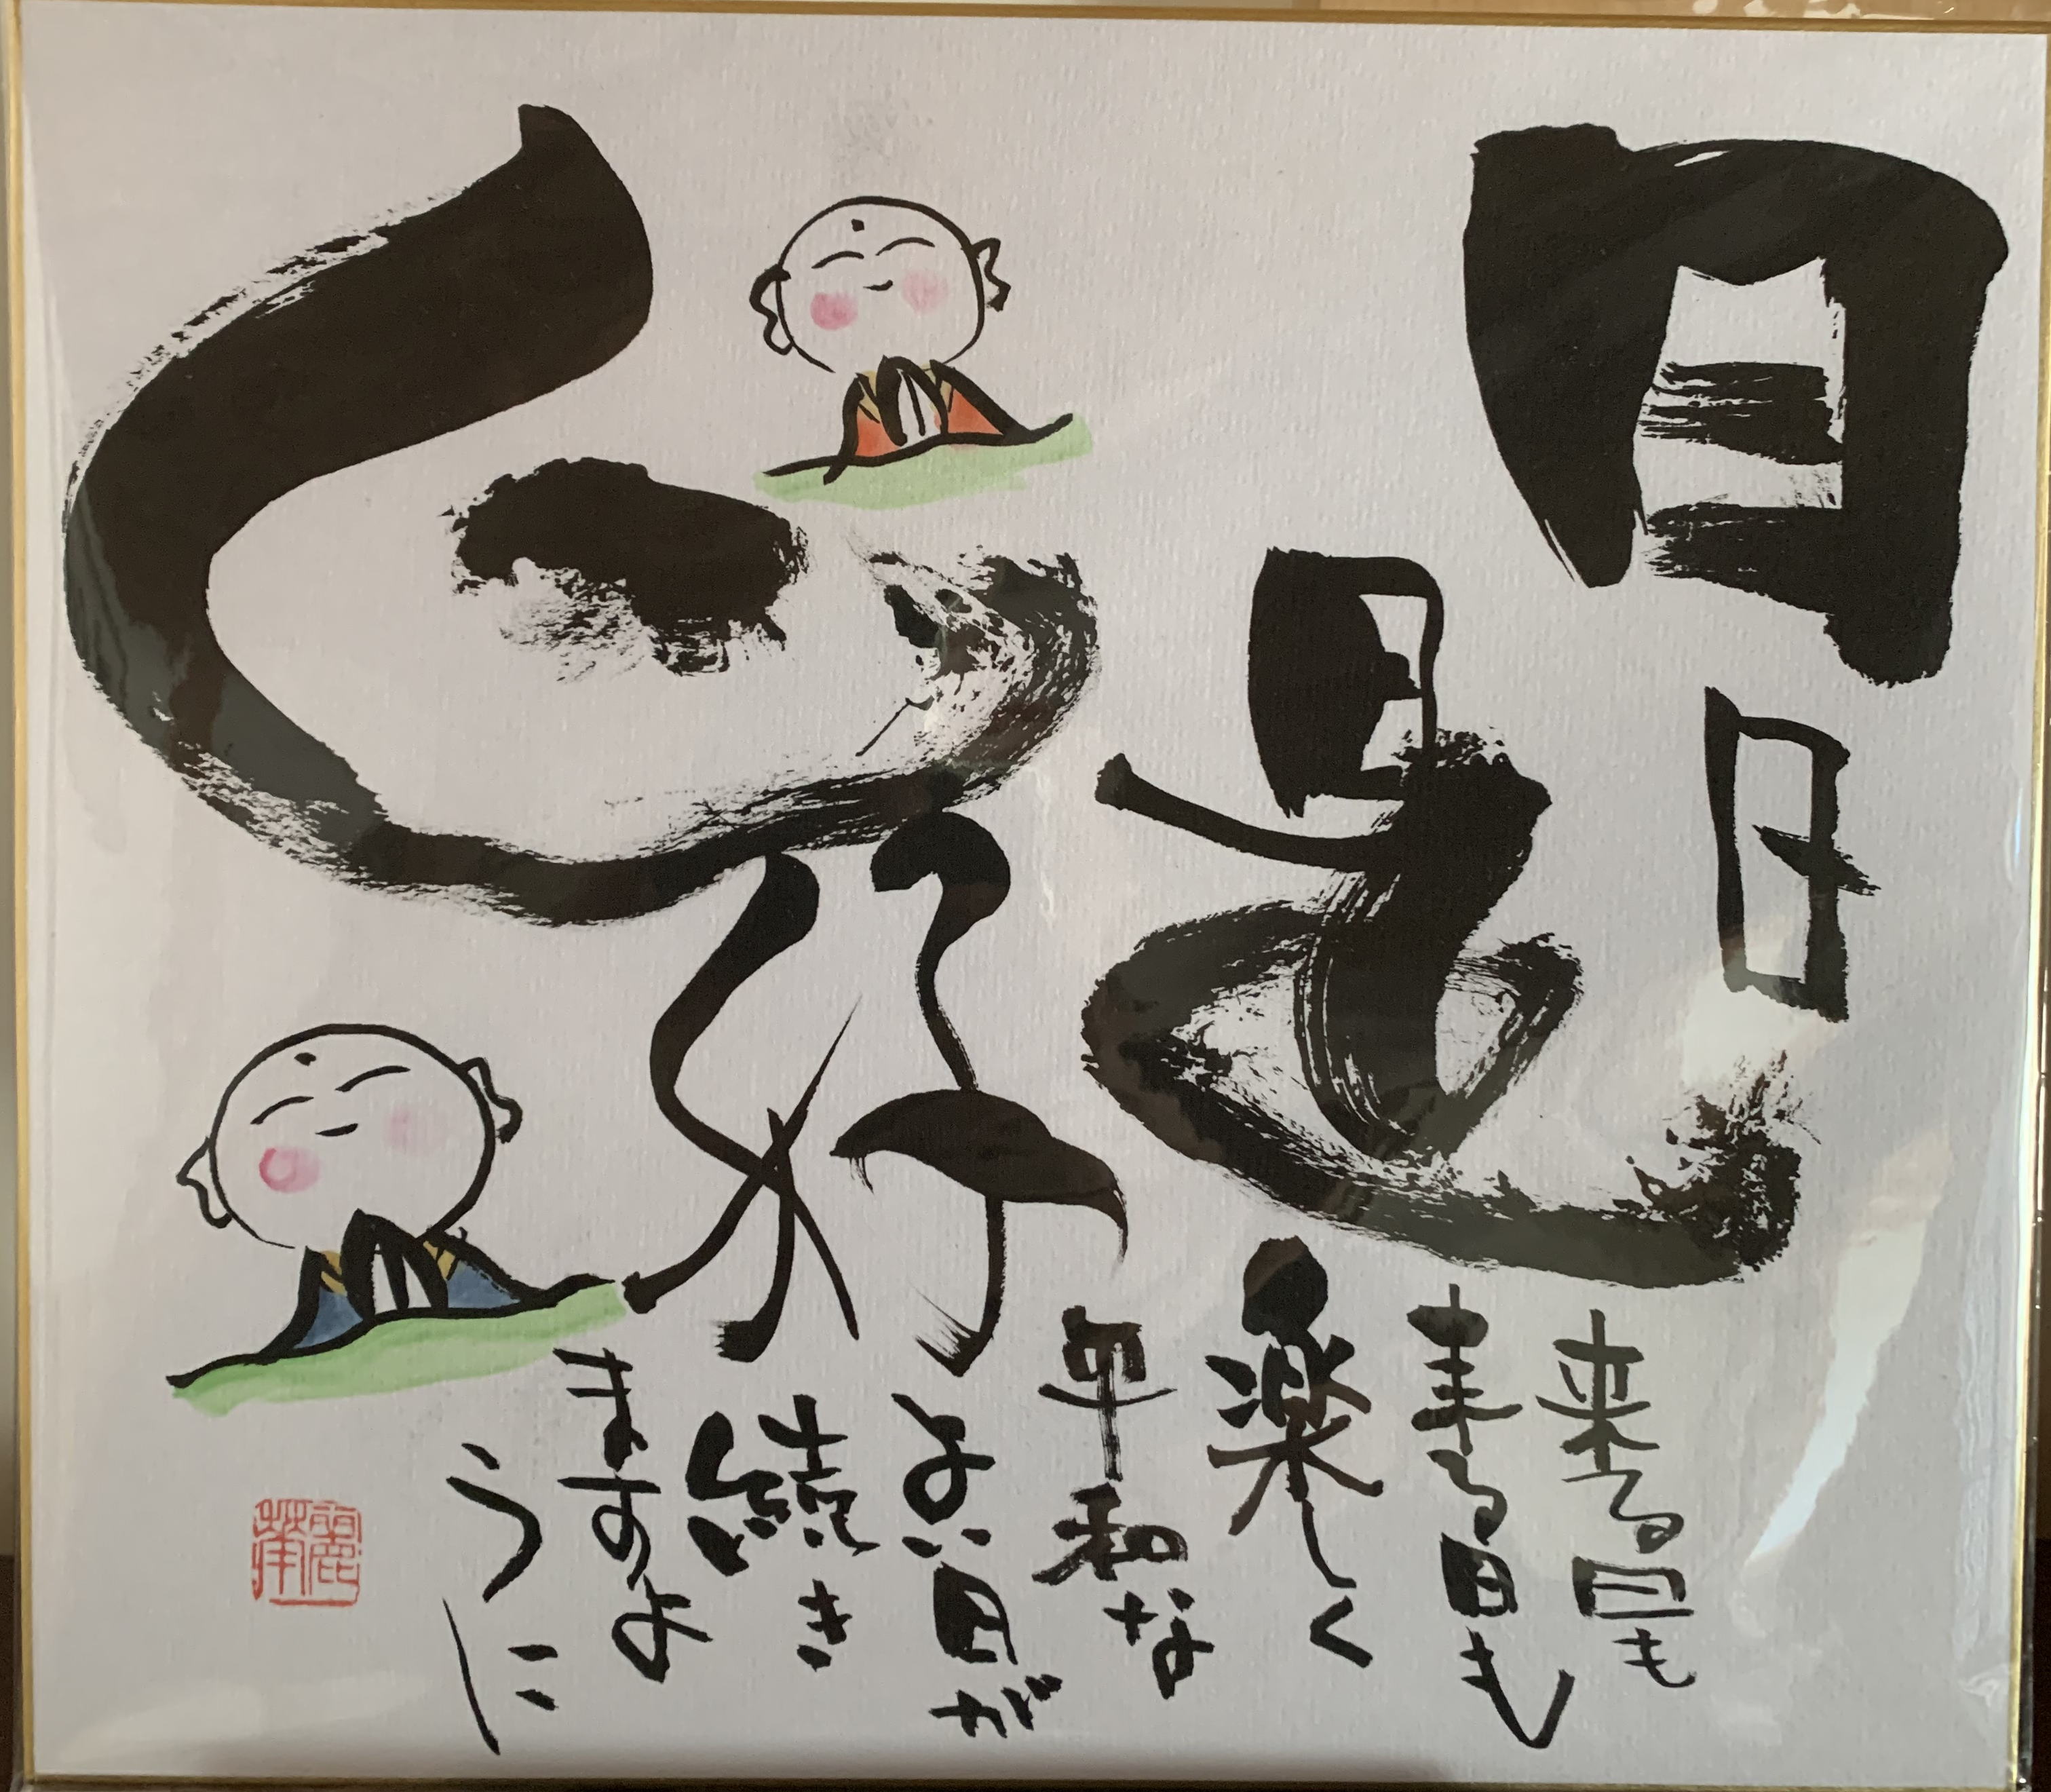 日日
是
好
日
来る日も
来る日も
楽しく
平和な
よい日が
続き
ますよ
うに